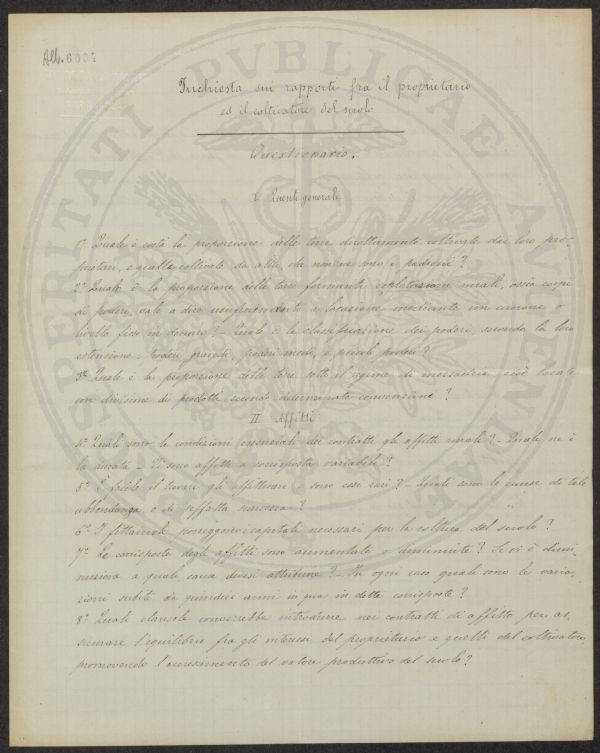 All. 6001
Inchiesta sui rapporti fra il proprietario
ed il coltivatore del suolo
Questionario.
I Quesiti generali
1º Quale è costà la proporzione delle terre direttamente coltivate dai loro pro-
prietari, e quelle coltivate da altri, che non ne sono i padroni?
2º Quale è la proporzione delle terre formanti esplotazioni rurali, ossia corpi
di poderi, vale a dire usufruttandosi a locazione mediante un canone o
livello fisso in denaro? - Quale è la classificazione dei poderi, secondo la loro
estensione: poderi grandi, poderi medi, e piccoli poderi?
3º Quale è la proporzione delle terre sotto il regime di mezzadria, cioè locate
con divisione di prodotti secondo determinate convenzioni?
II Affitti
4º Quali sono le condizioni essenziali dei contratti gli affitti rurali? - Quale ne è
la durata - Vi sono affitti a corrisposta variabile?
5º È facile il trovare gli affittuari o sono essi rari? - Quali sono le cause di tale
abbondanza, o di siffatta rarezza?
6º I fittaiuoli posseggono i capitali necessari per la coltura del suolo?
7º Le corrisposte degli affitti sono aumentate o diminuite? Se vi è dimi-
nuzione a quale causa devesi attribuire? - In ogni caso quali sono le varia-
zioni subite da quindici anni in qua in dette corrisposte?
8º Quali clausole converrebbe introdurre nei contratti di affitto per as-
sicurare l'equilibrio fra gli interessi del proprietario e quelli del coltivatore,
promovendo l'accrescimento del valore produttivo del suolo?
PROSPERITATI PVBLICAE AVGENDAE